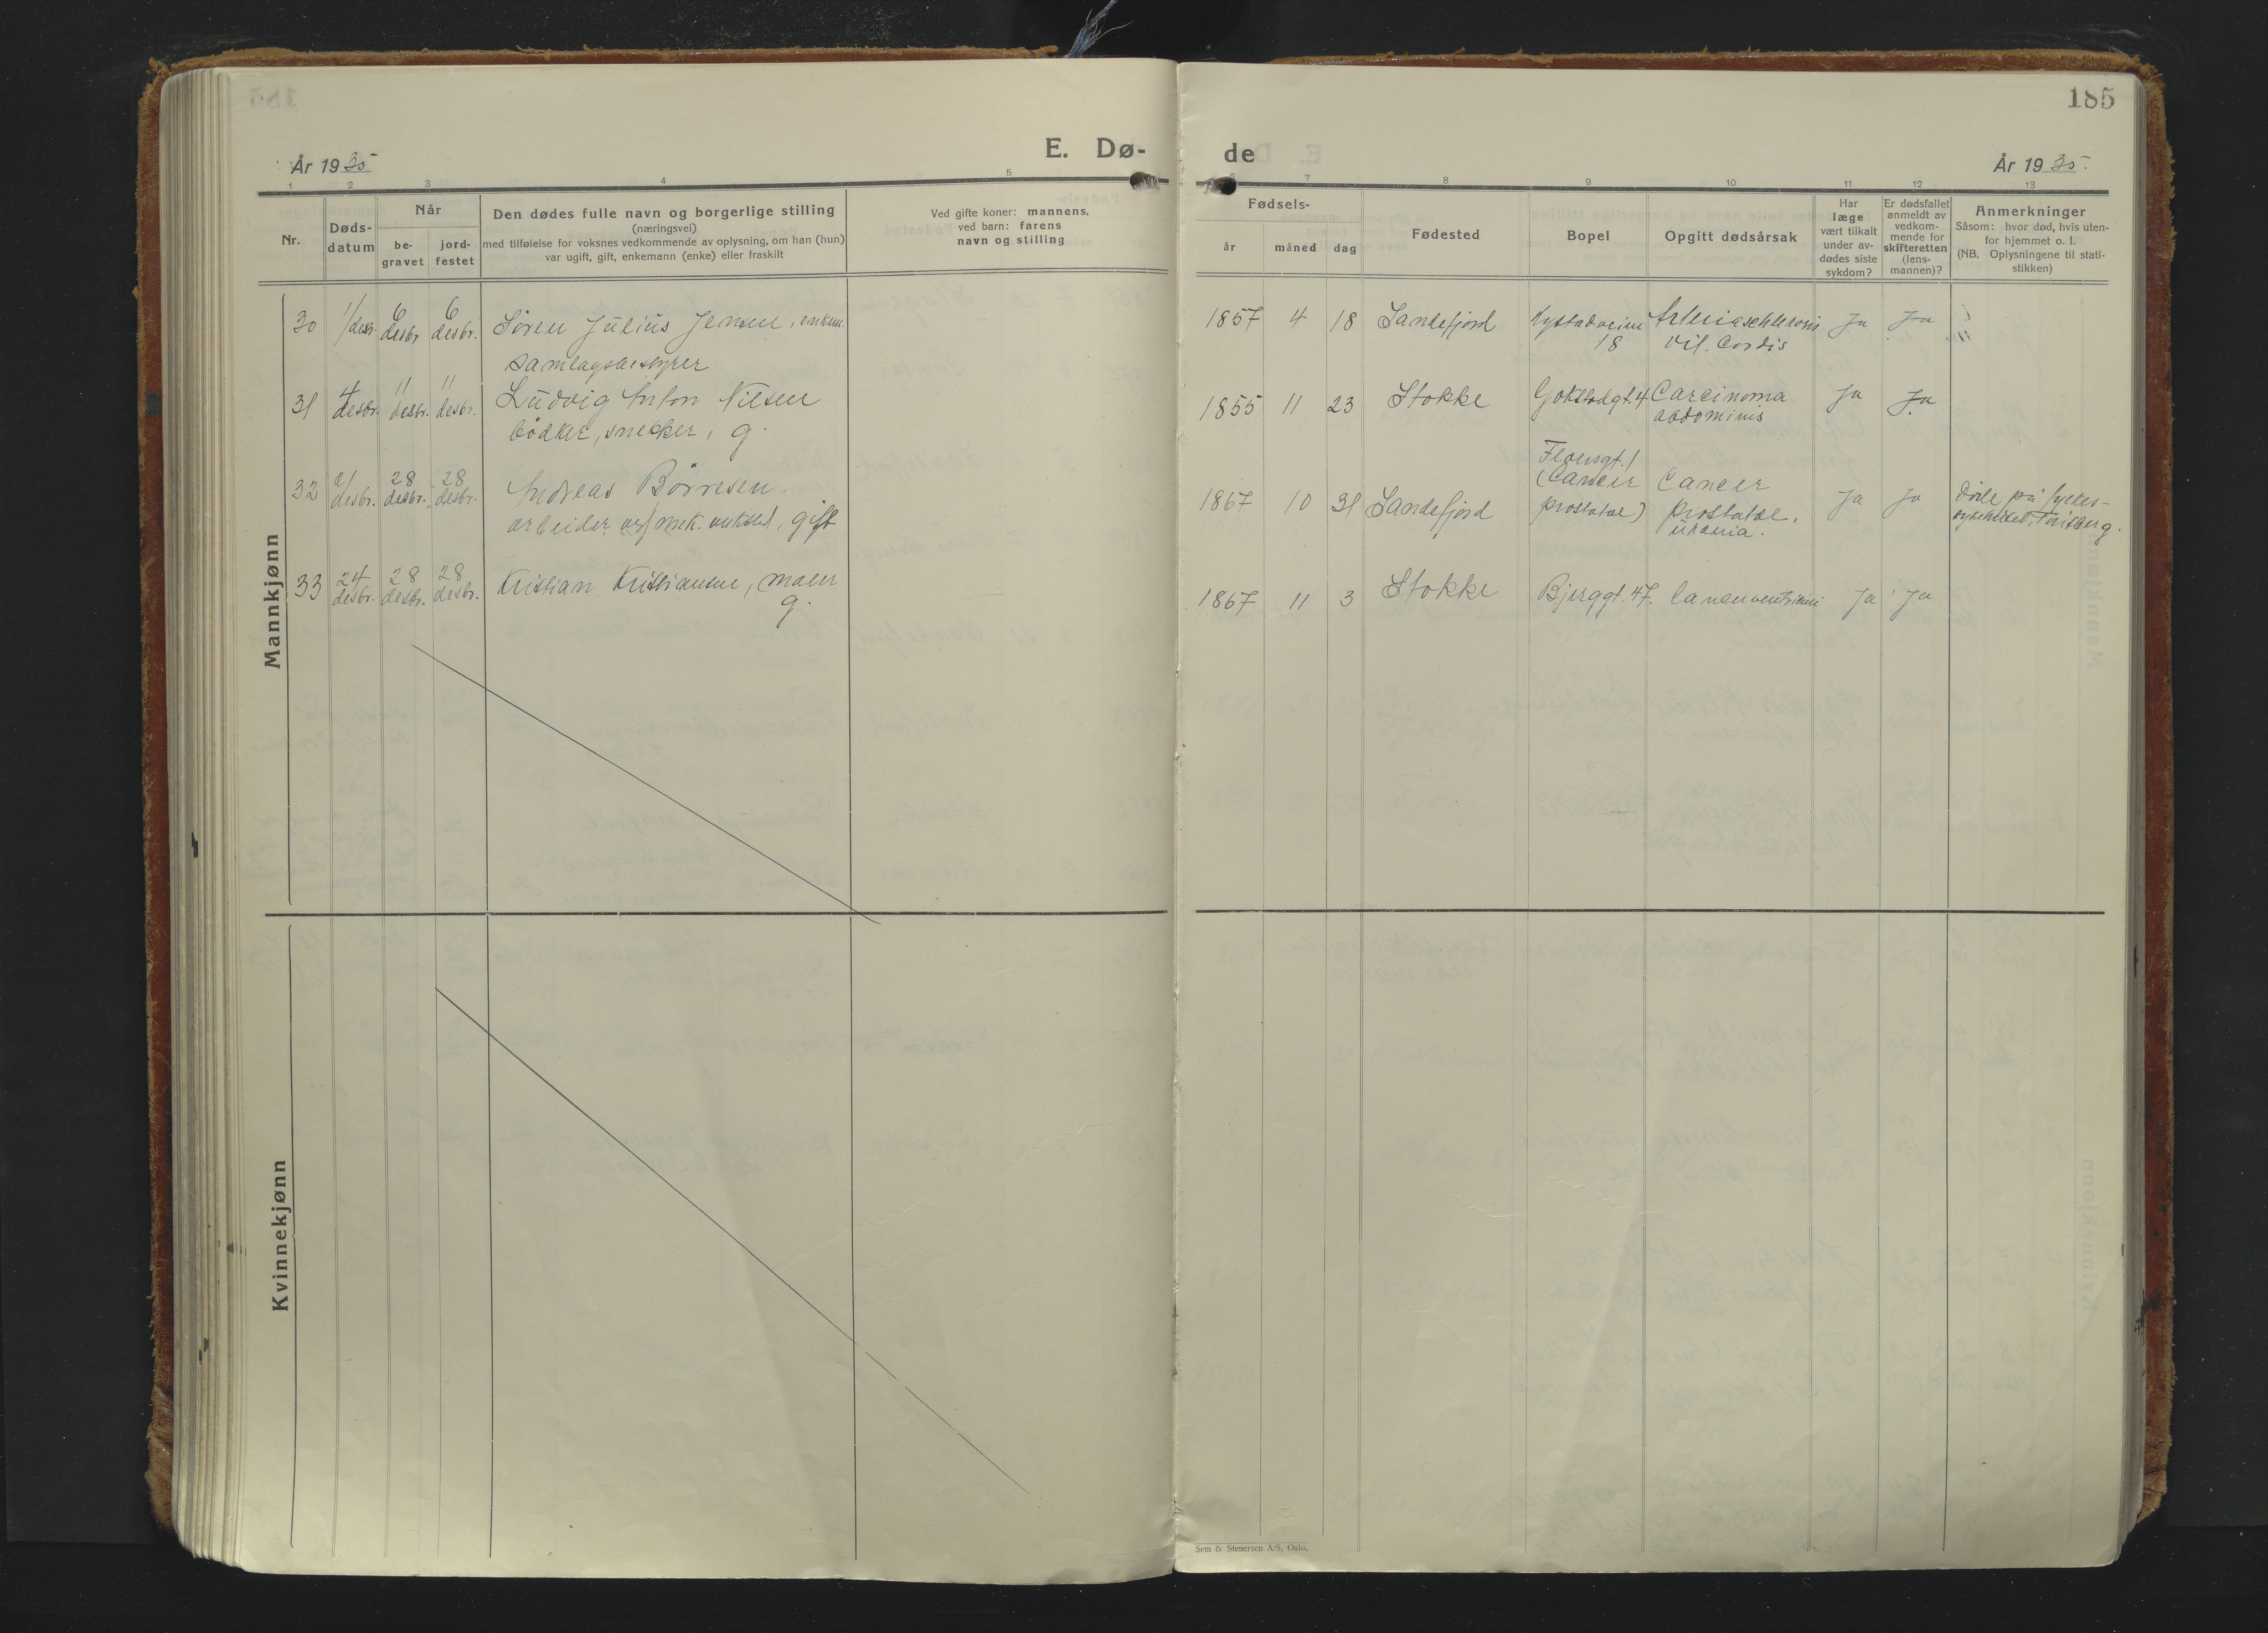 185
E. Dø- de
År 1935
År 1935.
1 2 3 4 5 7 8 9 10 11 12 13
Nr.
Døds-
datum
Når
be-
gravet
jord-
festet
Den dødes fulle navn og borgerlige stilling
(næringsvei)
med tilføielse for voksnes vedkommende av oplysning, om han (hun)
var ugift, gift, enkemann (enke) eller fraskilt
Ved gifte koner: mannens,
ved barn: farens
navn og stilling
Fødsels-
år måned dag
Fødested
Bopel
Opgitt dødsårsak
Har
læge
vært tilkalt
under av-
dødes siste
sykdom?
Er dødsfallet
anmeldt av
vedkom-
mende for
skifteretten
(lens-
mannen)?
Anmerkninger
Såsom: hvor død, hvis uten-
for hjemmet o. l.
(NB. Oplysningene til stati-
stikken)
Mannkjønn
30 1/desbr. 6 desbr. 6 desbr. Søren Julius Jensen, enkem. 1857 4 18 Sandefjord Nystadveien Arterioschlerosis Ja Ja
samlagsbestyrer 18 Vit. Cordis
31 4 desbr. 11 desbr. 11 desbr. Ludvig Anton Nilsen 1855 11 23 Stokke Gokstadgt. 4 Carcinoma Ja Ja
bødker, snekker, g. abdominis
32 21 desbr. 28 desbr. 28 desbr. Andreas Børresen. 1867 10 31 Sandefjord (Cancer Cancer Ja Ja Døde på fylkes-
arbeider ved mek. verksted, gift prostatae) prostatae, sykehuset, Tønsberg.
urämia.
33 24 desbr. 28 desbr. 28 desbr. Kristian Kristiansen, maler 1867 11 3 Stokke Bjerggt. 47. Cancer ventriculi Ja Ja
g.
Kvinnekjønn
Sem & Stenersen A/S, Oslo.